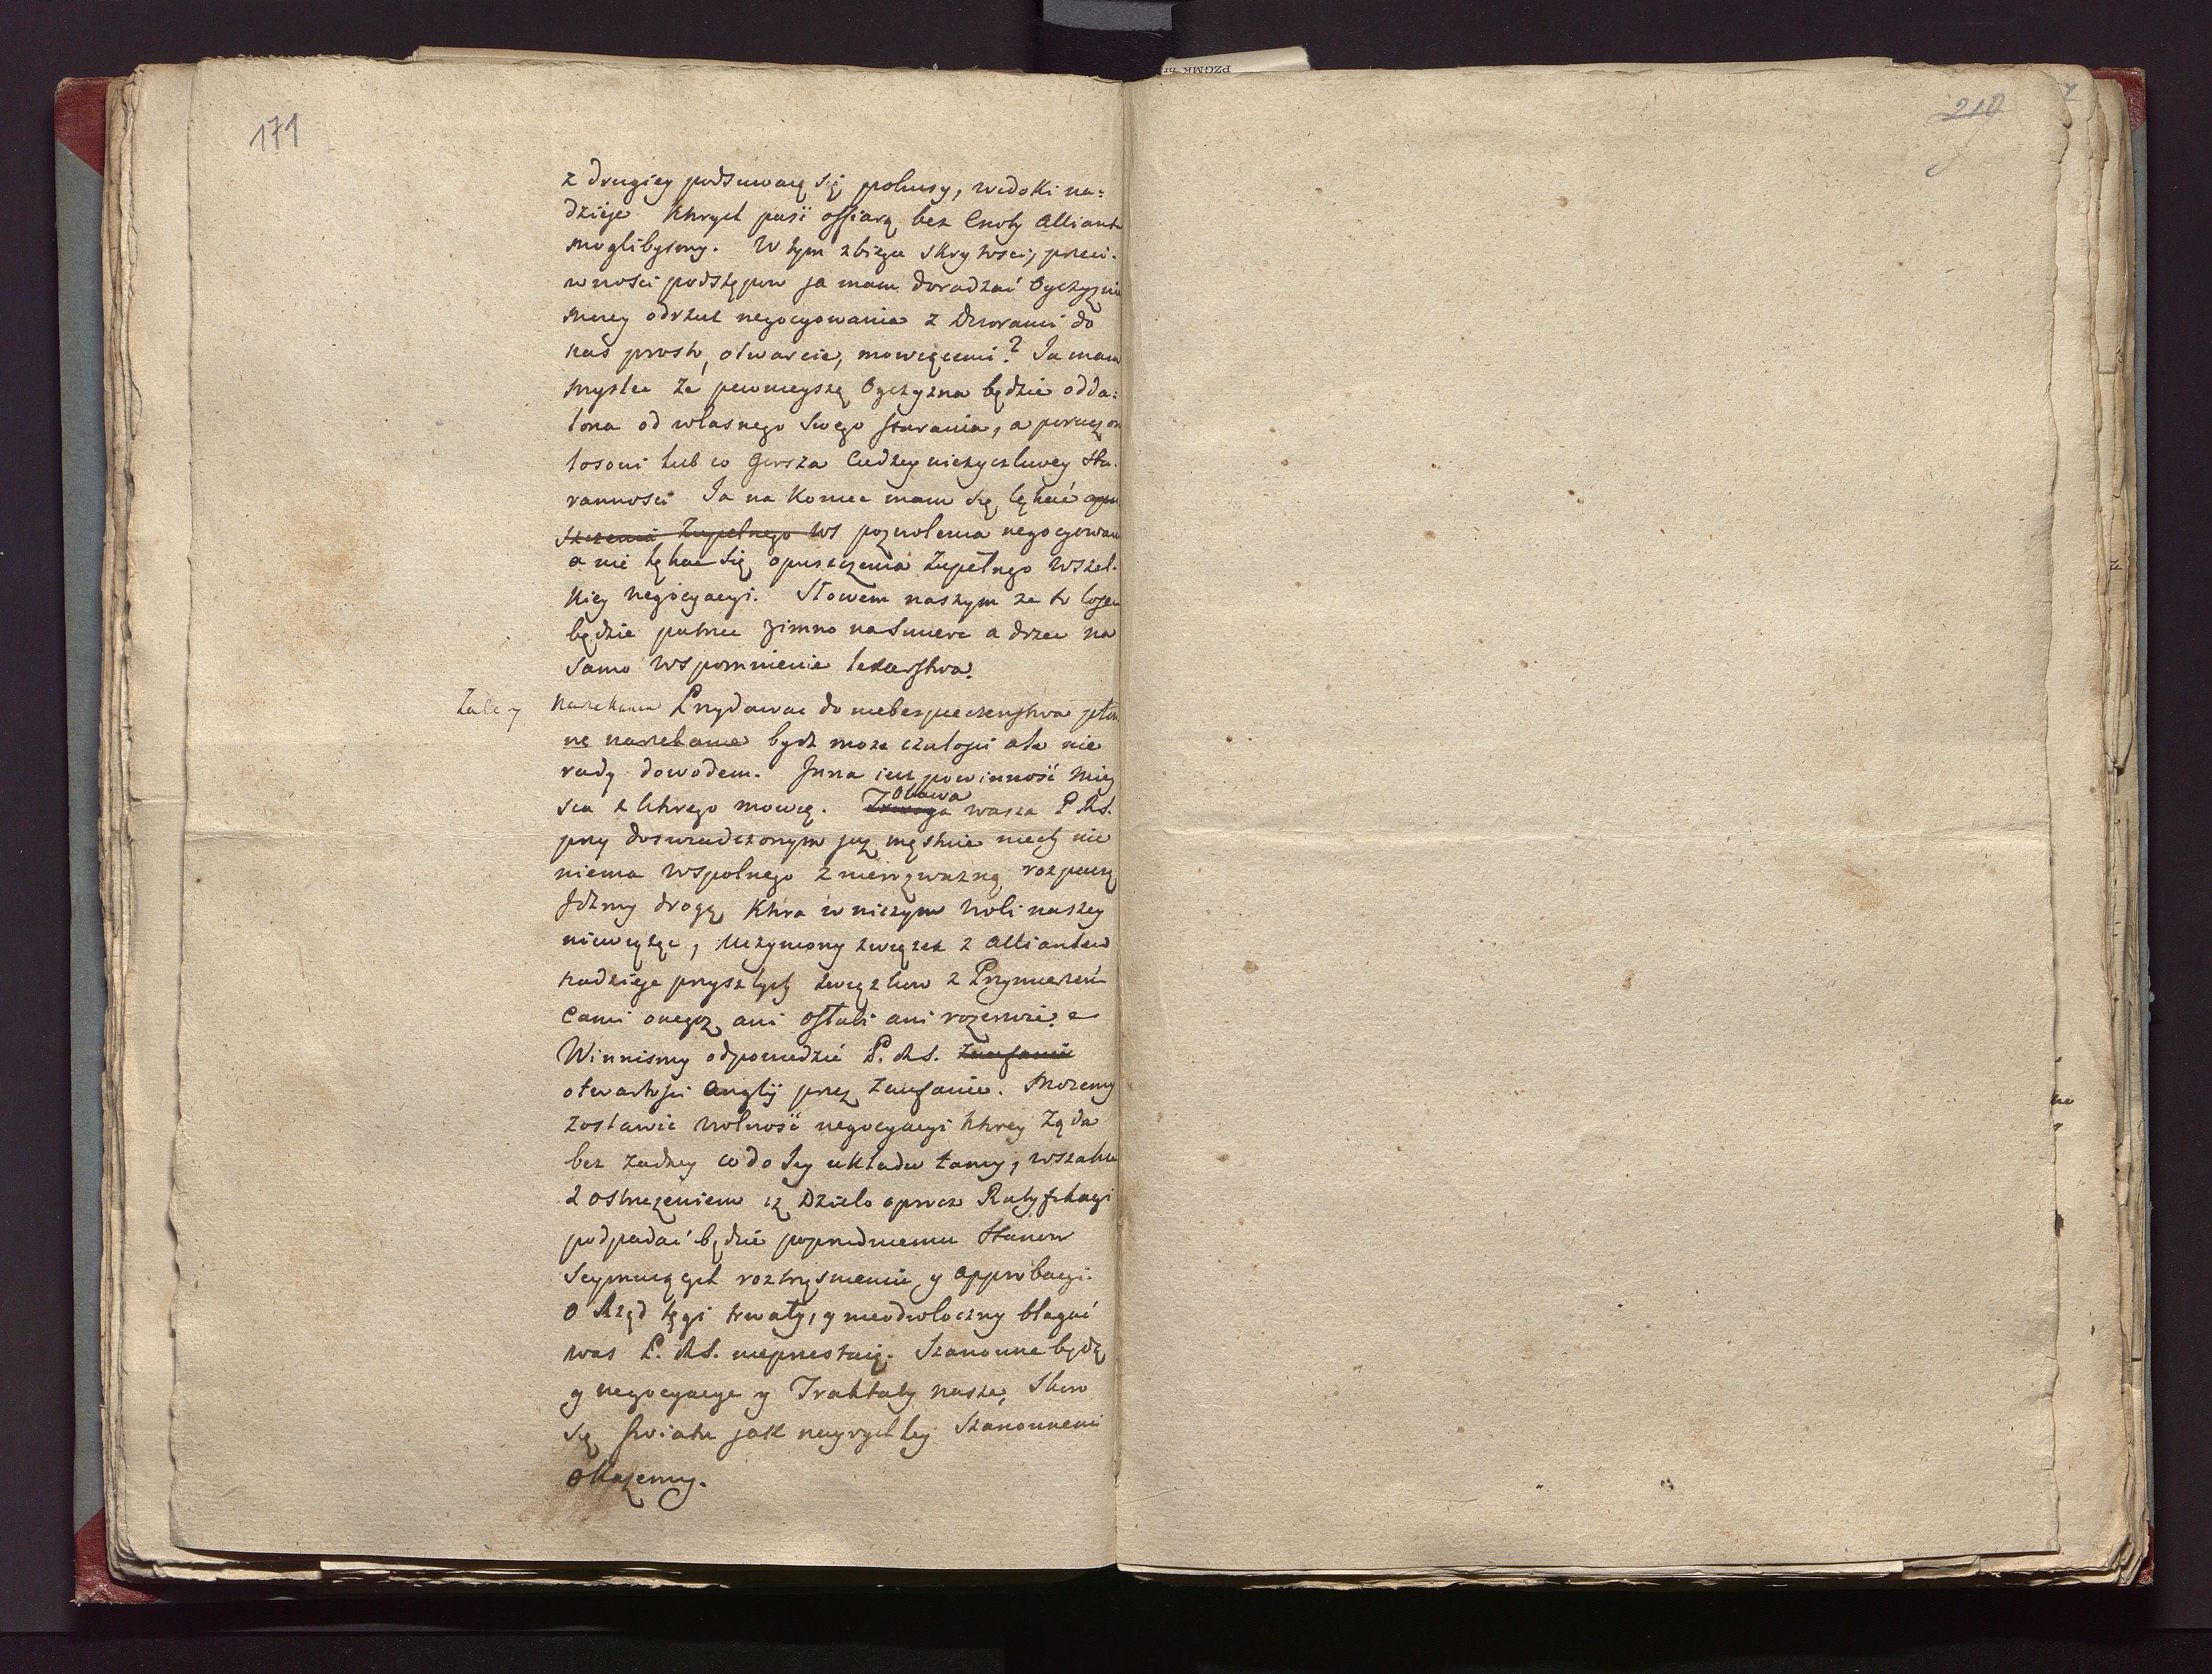 171
z drugiey podsuwaią się pokusy, widoki na=
dzieje których paść offiarą bez Cnoty Alliant
moglibysmy. W tym zbiegu skrytosci, przeci-
wności podstępow ja mam doradzać Oyczyznie
moiey odrzut negocyowania z Dworami do
nas prosto, otwarcie, mowiącemi? Ja mam
myslec że pewnieyszą Oyczyzna będzie odda=
lona od własnego swego starania, a poruczona
losowi lub co gorsza Cudzey nieżyczliwey sta-
ranności Ja na koniec mam się lękać opu
szczenia Zupełnego ws pozwolenia negocyowan
a nie lękac się opuszczenia Zupełnego wszel-
kiey negocyacyi. Słowem naszym że to losem
będzie patrzec zimno na smierc a drzec na
samo wspomnienie lekarstwa.
Zale y narzekania Przydawac do niebezpieczenstwa płon
ne narzekanie bydz moze czułosci ale nie
rady dowodem. Inna iest powinność miey
sca z którego mowię. Trwoga Obawa wasza P. R. S.
przy doswiadczonym juz męstwie niech nic
niema wspolnego z nierozważną rozpaczą
Idzmy drogą która w niczym woli naszey
niewiążąc, uczyniony związek z Alliantem
nadzieje przyszłych związkow z Przymierzeń
cami onegoz ani osłabi ani rozerwie.
Winnismy odpowiedzić P. R. S. Zaufanie
otwartosci Anglij przez Zaufanie. Możemy
zostawić wolność negocyacyi którey Ząda
bez żadney co do Jey układu tamy, wszakze
z ostrzeżeniem iż Dzieło oprocz Ratyfikacyi
podpadać będzie poprzedniemu Stanow
Seymuiących roztrząsnieniu y approbacyi.
O Rząd tęgi trwały, y nieodwłoczny błagać
was P. R. S. nieprzestaię. Szanowne będą
y negocyacye y Traktaty nasze, skoro
się swiatu jak nayrychley Szanownemi
okażemy.
210